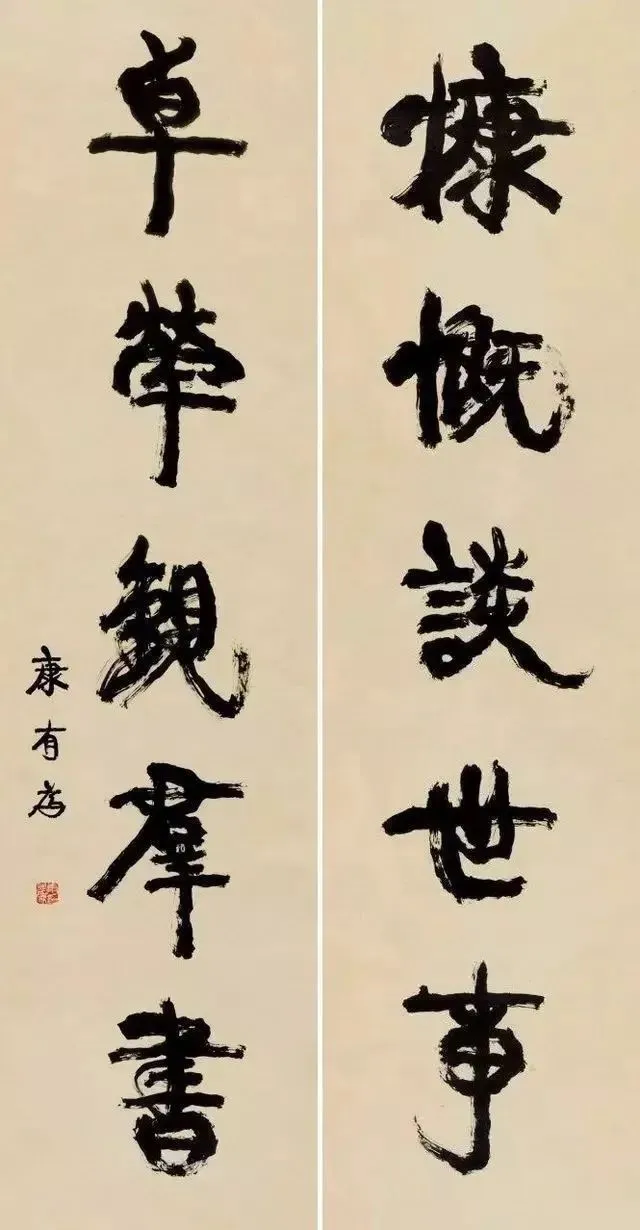 慷慨談世事
卓犖觀羣書
康有為